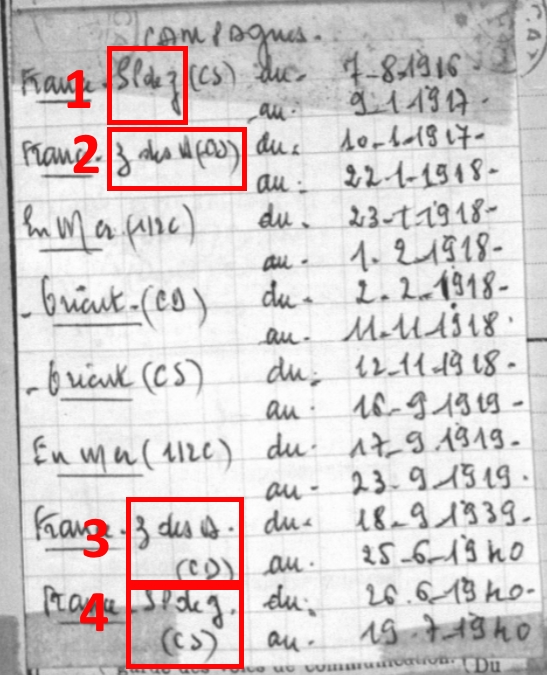 CAMPAGNES.
1 France. SP de g (CS) du. 7-8-1916
au. 9-1-1917.
2 France. Z des A (CD) du. 10-1-1917-
au. 22-1-1918-
En Mer (1/2C) du. 23-1-1918-
au. 1. 2.1918-
- Orient. (CD) du. 2. 2.1918-
au. 11.11.1918.
- Orient (CS) du. 12-11-1918-
au. 16-9-1919-
En mer (1/2C) du. 17-9.1919-
au. 23.9.1919.
3 France. Z des A. du. 18-9-1939-
(CD) au. 25-6-1940
4 France. SP de g. du. 26.6-1940-
(CS) au. 19.7-1940
(Garde des voies de communication. (Du